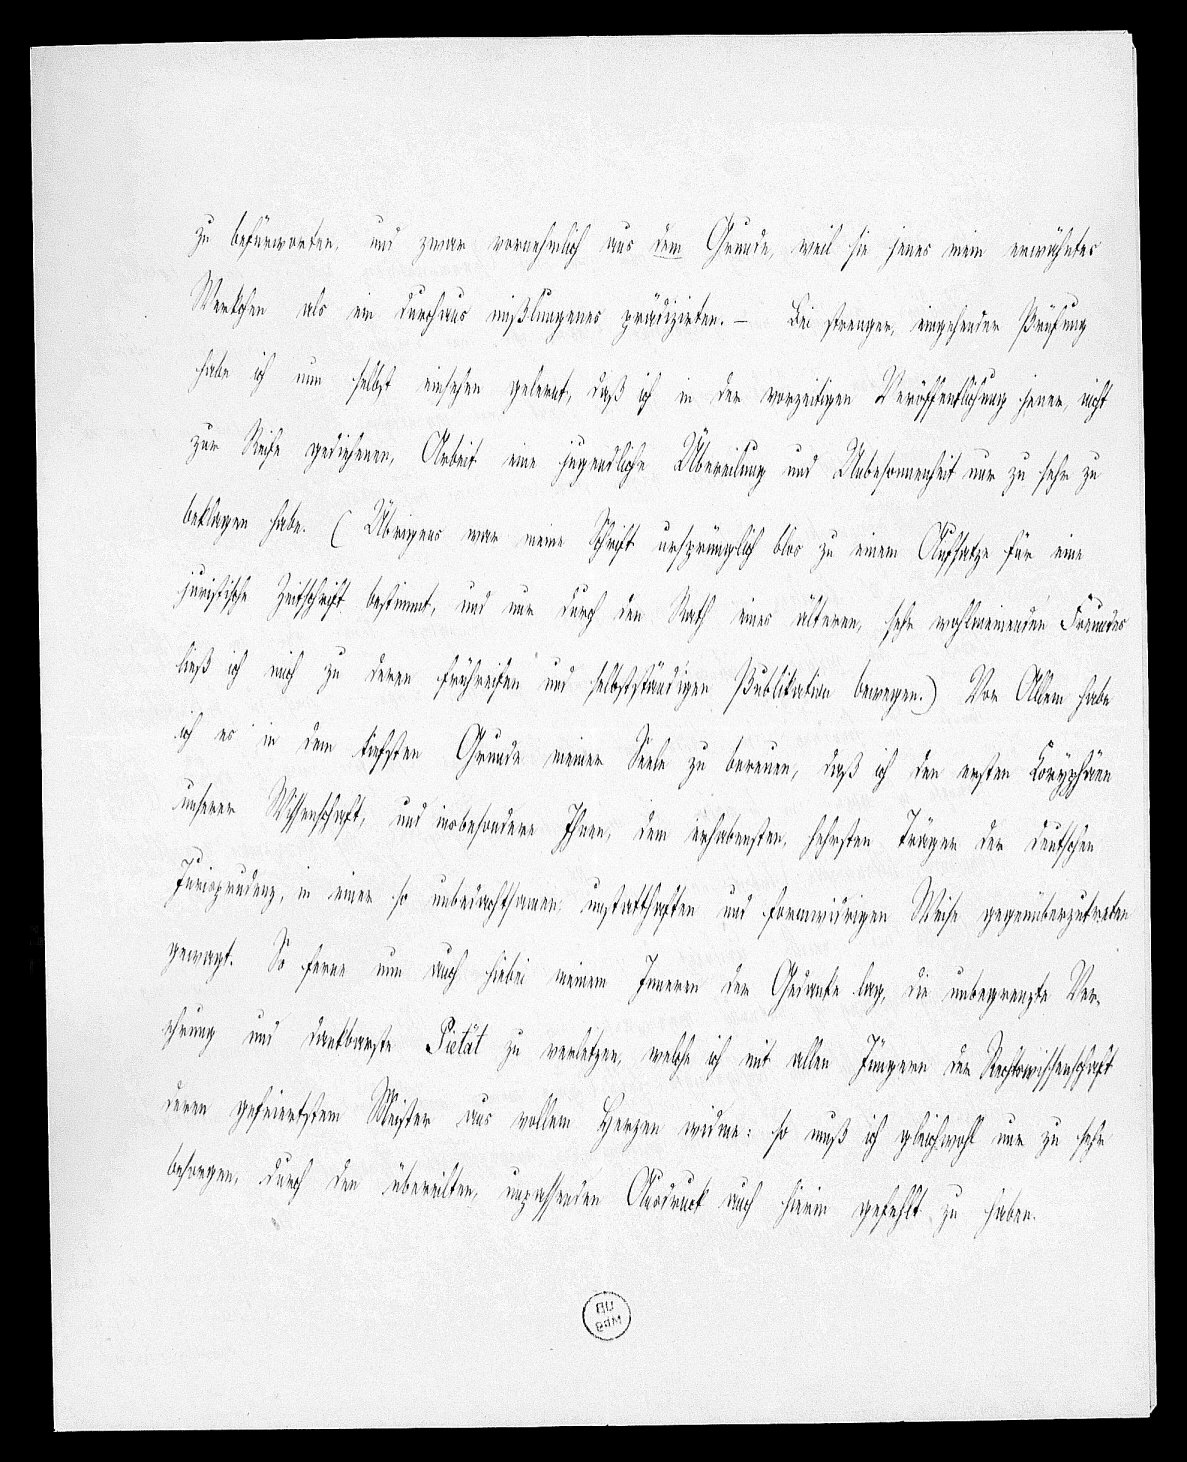 zu befürworten, und zwar vornehmlich aus dem Grunde, weil sie jenes mein erwähntes
Werkchen als ein durchaus mißlungenes prädizirten. – Bei strenger, eingehender Prüfung
habe ich nun selbst einsehen gelernt, daß ich in der vorzeitigen Veröffentlichung jener, nicht
zur Reife gediehenen, Arbeit eine jugendliche Übereilung und Unbesonnenheit nur zu sehr zu
beklagen habe. (Übrigens war meine Schrift ursprünglich blos zu einem Aufsatze für eine
juristische Zeitschrift bestimmt, und nur durch den Rath eines älteren, sehr wohlmeinenden Freundes
ließ ich mich zu deren frühreifen und selbstständigen Publikation bewegen.) Vor Allem habe
ich es in dem tiefsten Grunde meiner Seele zu bereuen, daß ich den ersten Koryphäen
unserer Wissenschaft, und insbesondere Ihnen, dem erhabensten, hehrsten Träger der deutschen
Jurisprudenz, in einer so unbedachtsamen, unstatthaften und formwidrigen Weise gegenüberzutreten
gewagt. So ferne nun auch hiebei meinem Inneren der Gedanke lag, die unbegrenzte Ver-
ehrung und dankbarste Pietät zu verletzen, welche ich mit allen Jüngern der Rechtswissenschaft
deren gefeiertstem Meister aus vollem Herzen widme: so muß ich gleichwohl nur zu sehr
besorgen, durch den übereilten, unpassenden Ausdruck auch hierin gefehlt zu haben.
UB
Mbg